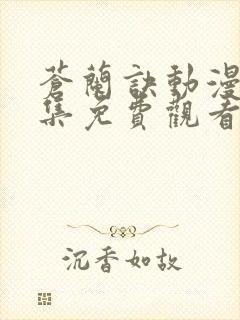 蒼蘭訣動漫
集免費觀看
沉香如故